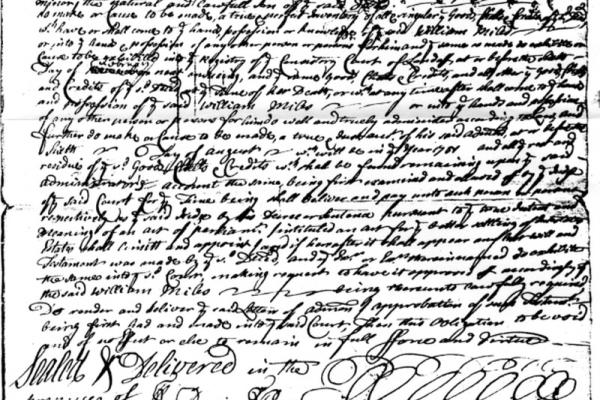 the natural and Lawfull Son of ye said
do make or Cause to be made, a true & perfect Inventory of all & singular ye good, Chattels Credits of ye Decd
wch have or shall come to ye hands, possession or knowledge of ye said William Miles
or into ye hands & possession of any other person or persons for him and ye same so made do exhibite or
Cause to be exhibited into ye Registry of ye Consistory Court of Landaff, at or before the
Day of next ensuing, and ye same goods, Chattels Credits, and all other ye goods,
and Credits of ye sd Decd att ye time of her Death, or wch at any time after shall come to ye hands
and possession of ye said William Miles or into ye hands and possession
of any other person or persons for him do well and truely administer according to Law, and
further do make or Cause to be made, a true & Just acct of his said admon, at or before ye
Sixth Day of august wch will be in ye year 1751 and all ye rest and
residue of ye sd Goods Chattels Credits wch shall be found remaining upon ye said
administrators account the same being first examined and allowed of by ye Judge
of ye said Court for ye Time being shall deliver and pay unto such person or persons
respectively as ye said Judge by his Decree or Sentance pursuant to ye true Intent and
meaning of an act of parliamt. Instituted an act for ye better settling of Intestates
Estates shall Limitt and appoint, and if hereafter it shall appear any last will and
Testament was made by ye sd Decd, and ye Exr or Exrs therein named do exhibite
the same into ye sd Court, making request to have it approved of accordingly if
the said William Miles being thereunto Lawfully required
Do render and deliver ye said Letters of admon ye approbation of such Testamt
being first had and made into ye said Court. Then this Obligation to be void
and of no Effect or else to remain in full fforce and Virtue
Sealed & Delivered in the
presence of